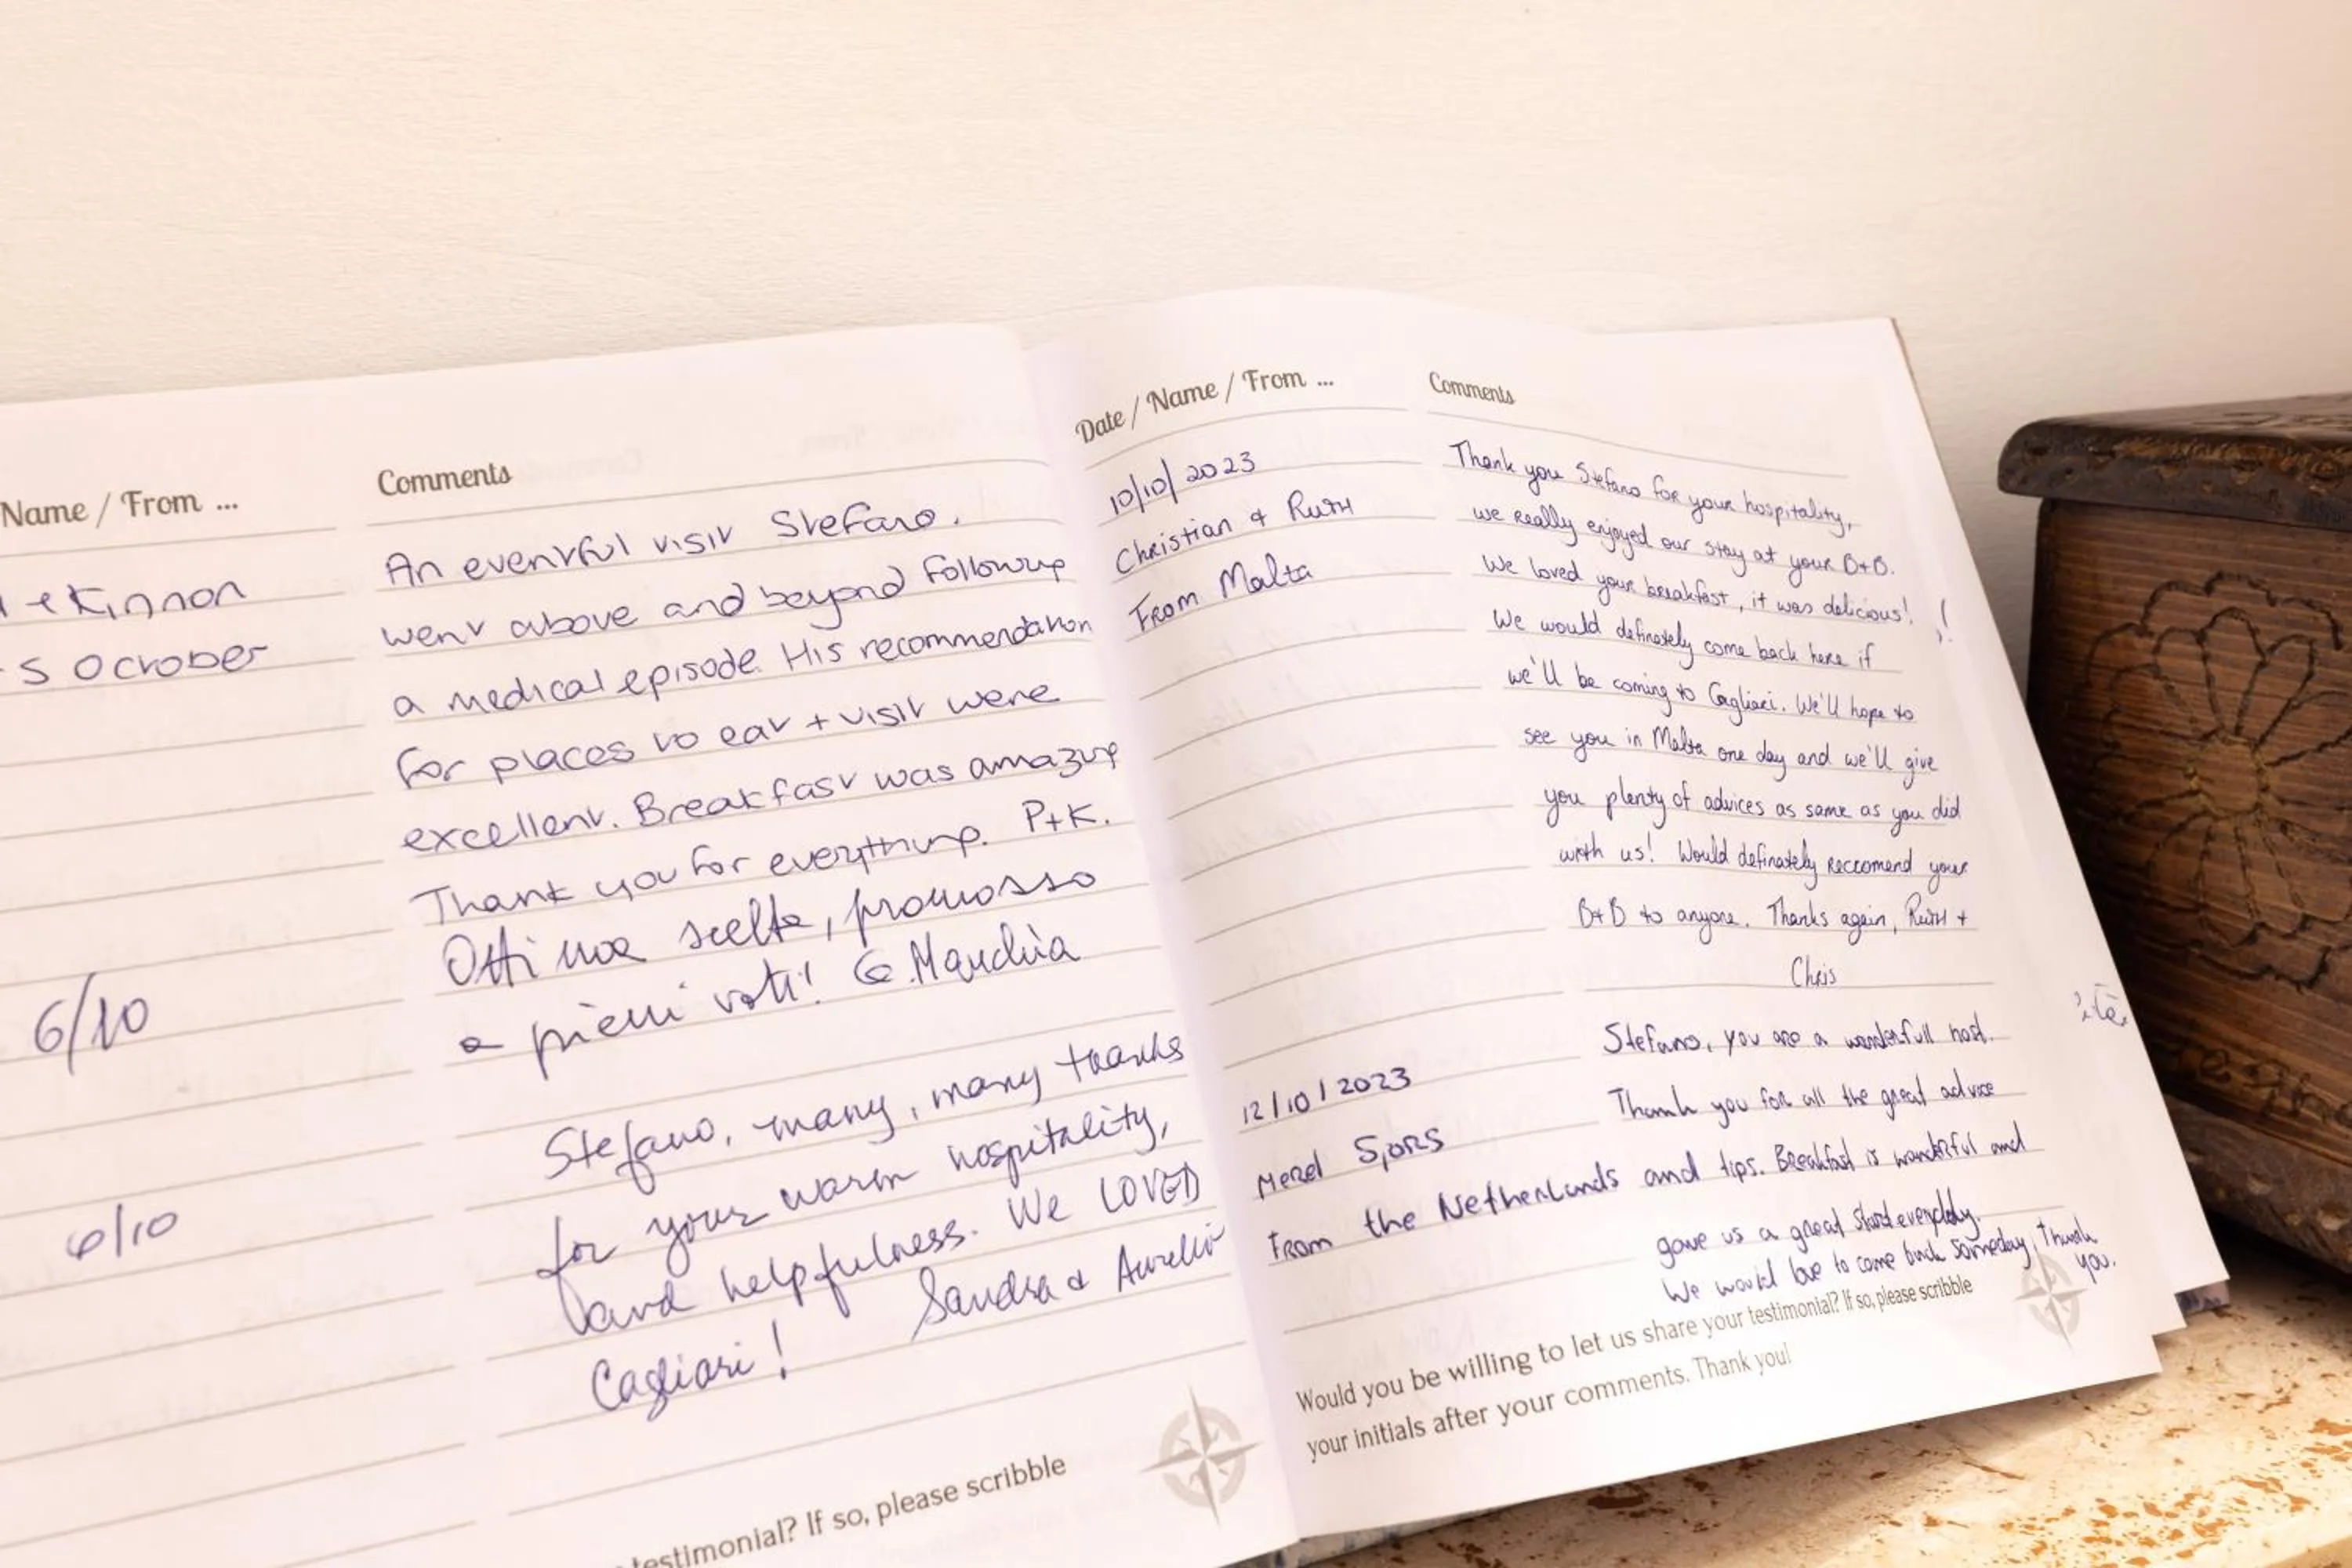 Name / From ...
Comments
Kinnon
5 October
An eventful visit Stefano.
went above and beyond following
a medical episode. His recommendation
for places to eat + visit were
excellent. Breakfast was amazing
Thank you for everything. P+K.
6/10
Ottima scelta, promosso
a pieni voti! G.
6/10
Stefano, many, many thanks
for your warm hospitality,
and helpfulness. We LOVED
Cagliari! Sandra & Aurelio
testimonial? If so, please scribble
Date / Name / From ...
Comments
10/10/2023
Christian & Ruth
From Malta
Thank you Stefano for your hospitality,
we really enjoyed our stay at your B+B.
We loved your breakfast, it was delicious!
We would definately come back here if
we'll be coming to Cagliari. We'll hope to
see you in Malta one day and we'll give
you plenty of advices as same as you did
with us! Would definately reccomend your
B+B to anyone. Thanks again, Ruth +
Chris
12/10/2023
Merel Sjors
From the Netherlands
Stefano, you are a wonderfull host.
Thank you for all the great advice
and tips. Breakfast is wonderful and
gave us a great start everyday.
We would love to come back someday, Thank
you.
Would you be willing to let us share your testimonial? If so, please scribble
your initials after your comments. Thank you!